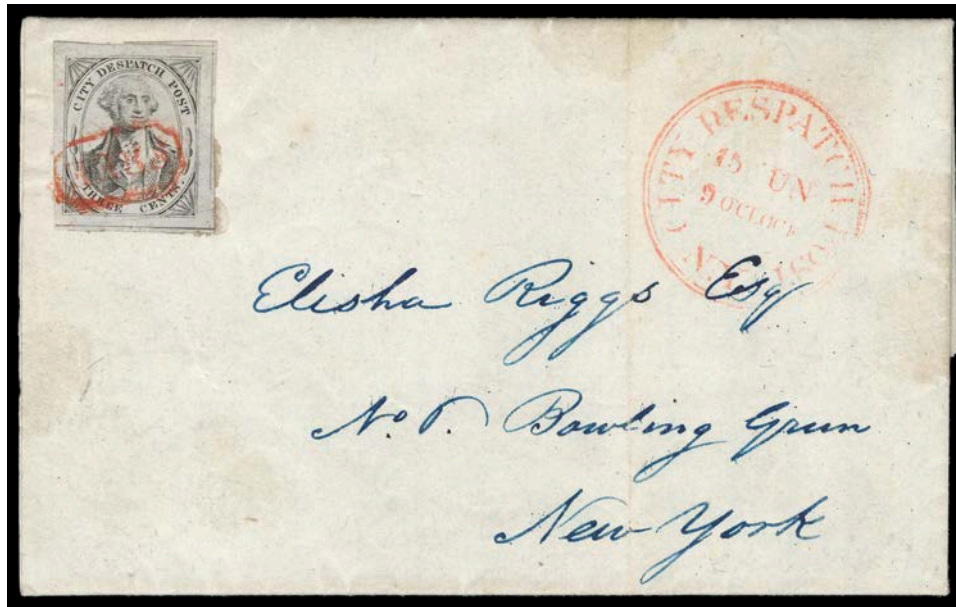 CITY DESPATCH POST
THREE CENTS.
CITY DESPATCH POST
N.Y.
15 UN
9 OCLOCK
Elisha Riggs Esqr
No Bowling Green
New York